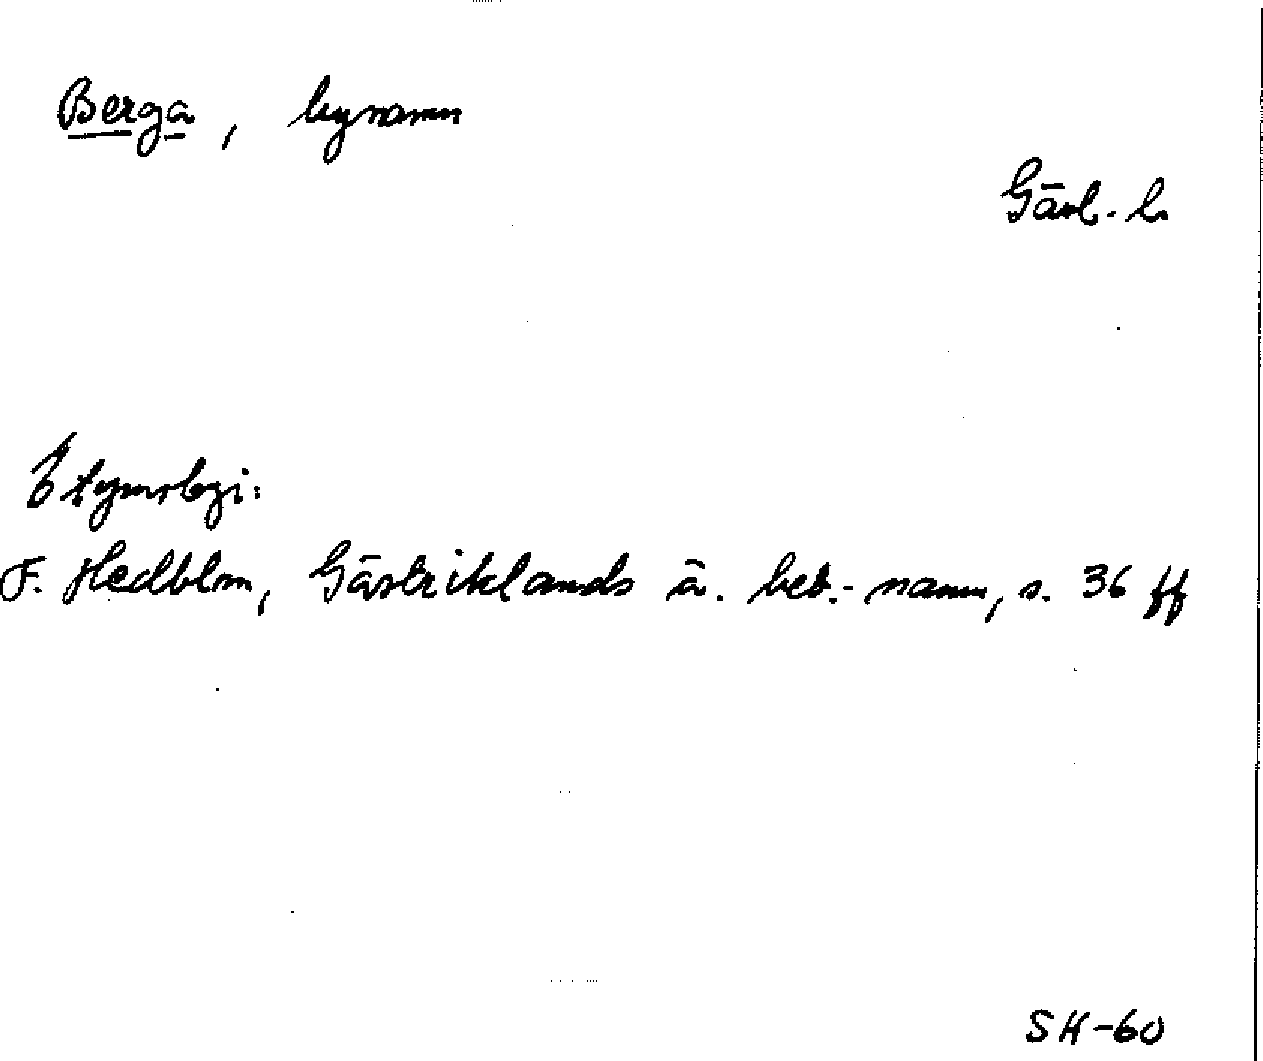 Berga, bynamn
Gävl. l.
Etymologi:
F. Hedblom, Gästriklands ä. beb.-namn, s. 36 ff
SH-60